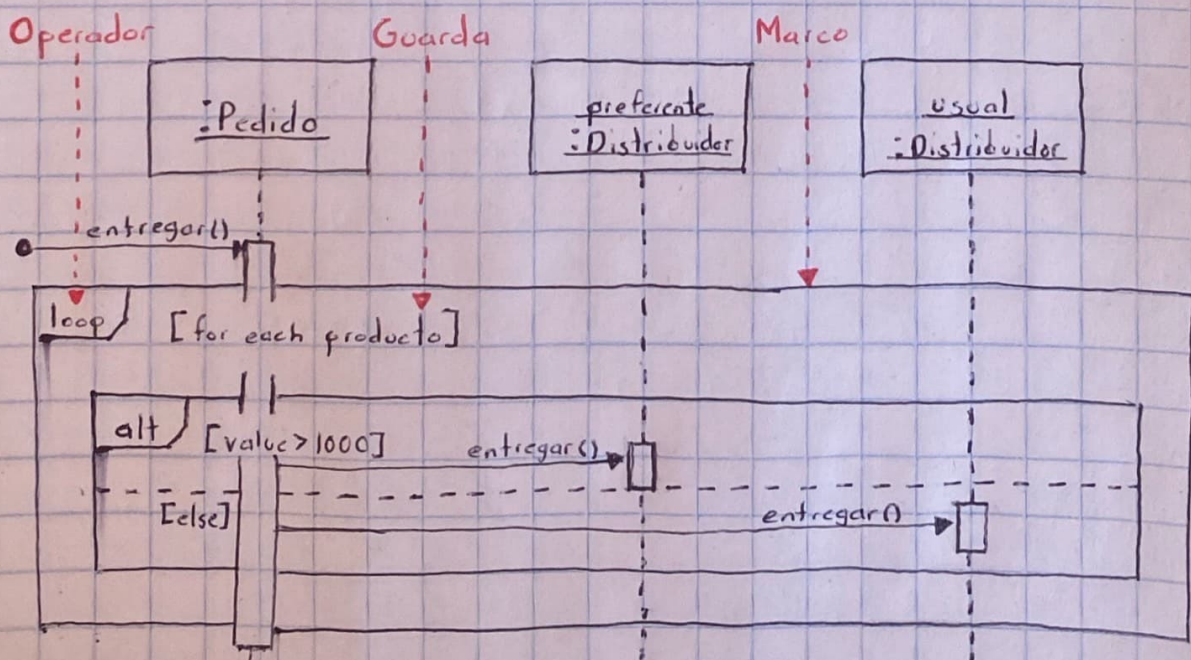 Operador
Guarda
Marco
:Pedido
preferente
:Distribuidor
usual
:Distribuidor
entregar()
loop
[for each producto]
alt
[value>1000]
entregar()
[else]
entregar()